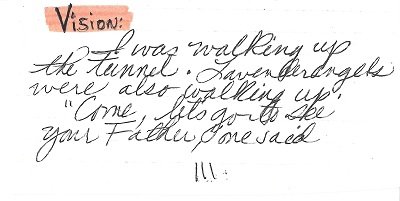 Vision:
I was walking up
the tunnel. Lavender angels
were also walking up.
"Come, let's go to see
your Father, one said
111.